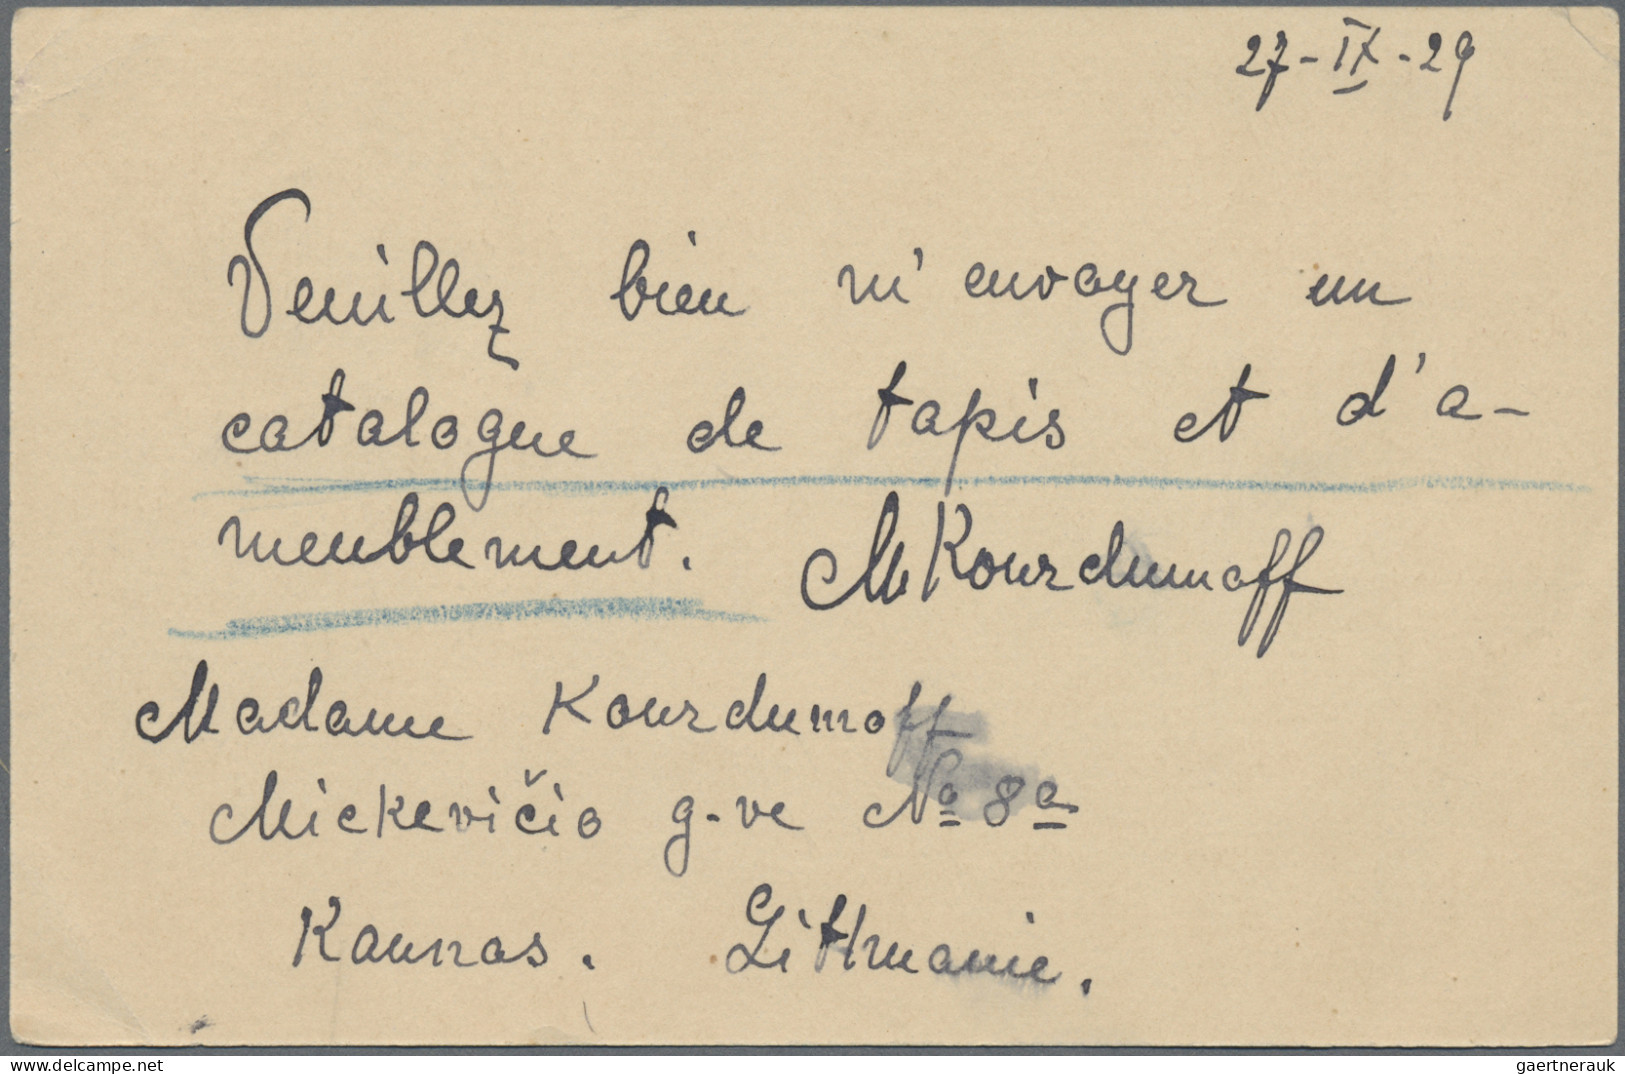 27-IX-29
Veuillez bien m'envoyer un
catalogue de tapis et d'a-
meublement. MKourdumoff
Madame Kourdumoff
Mickevičio g-ve № 8a
Kaunas. Lithuanie.
www.delcampe.net
gaertnerauk